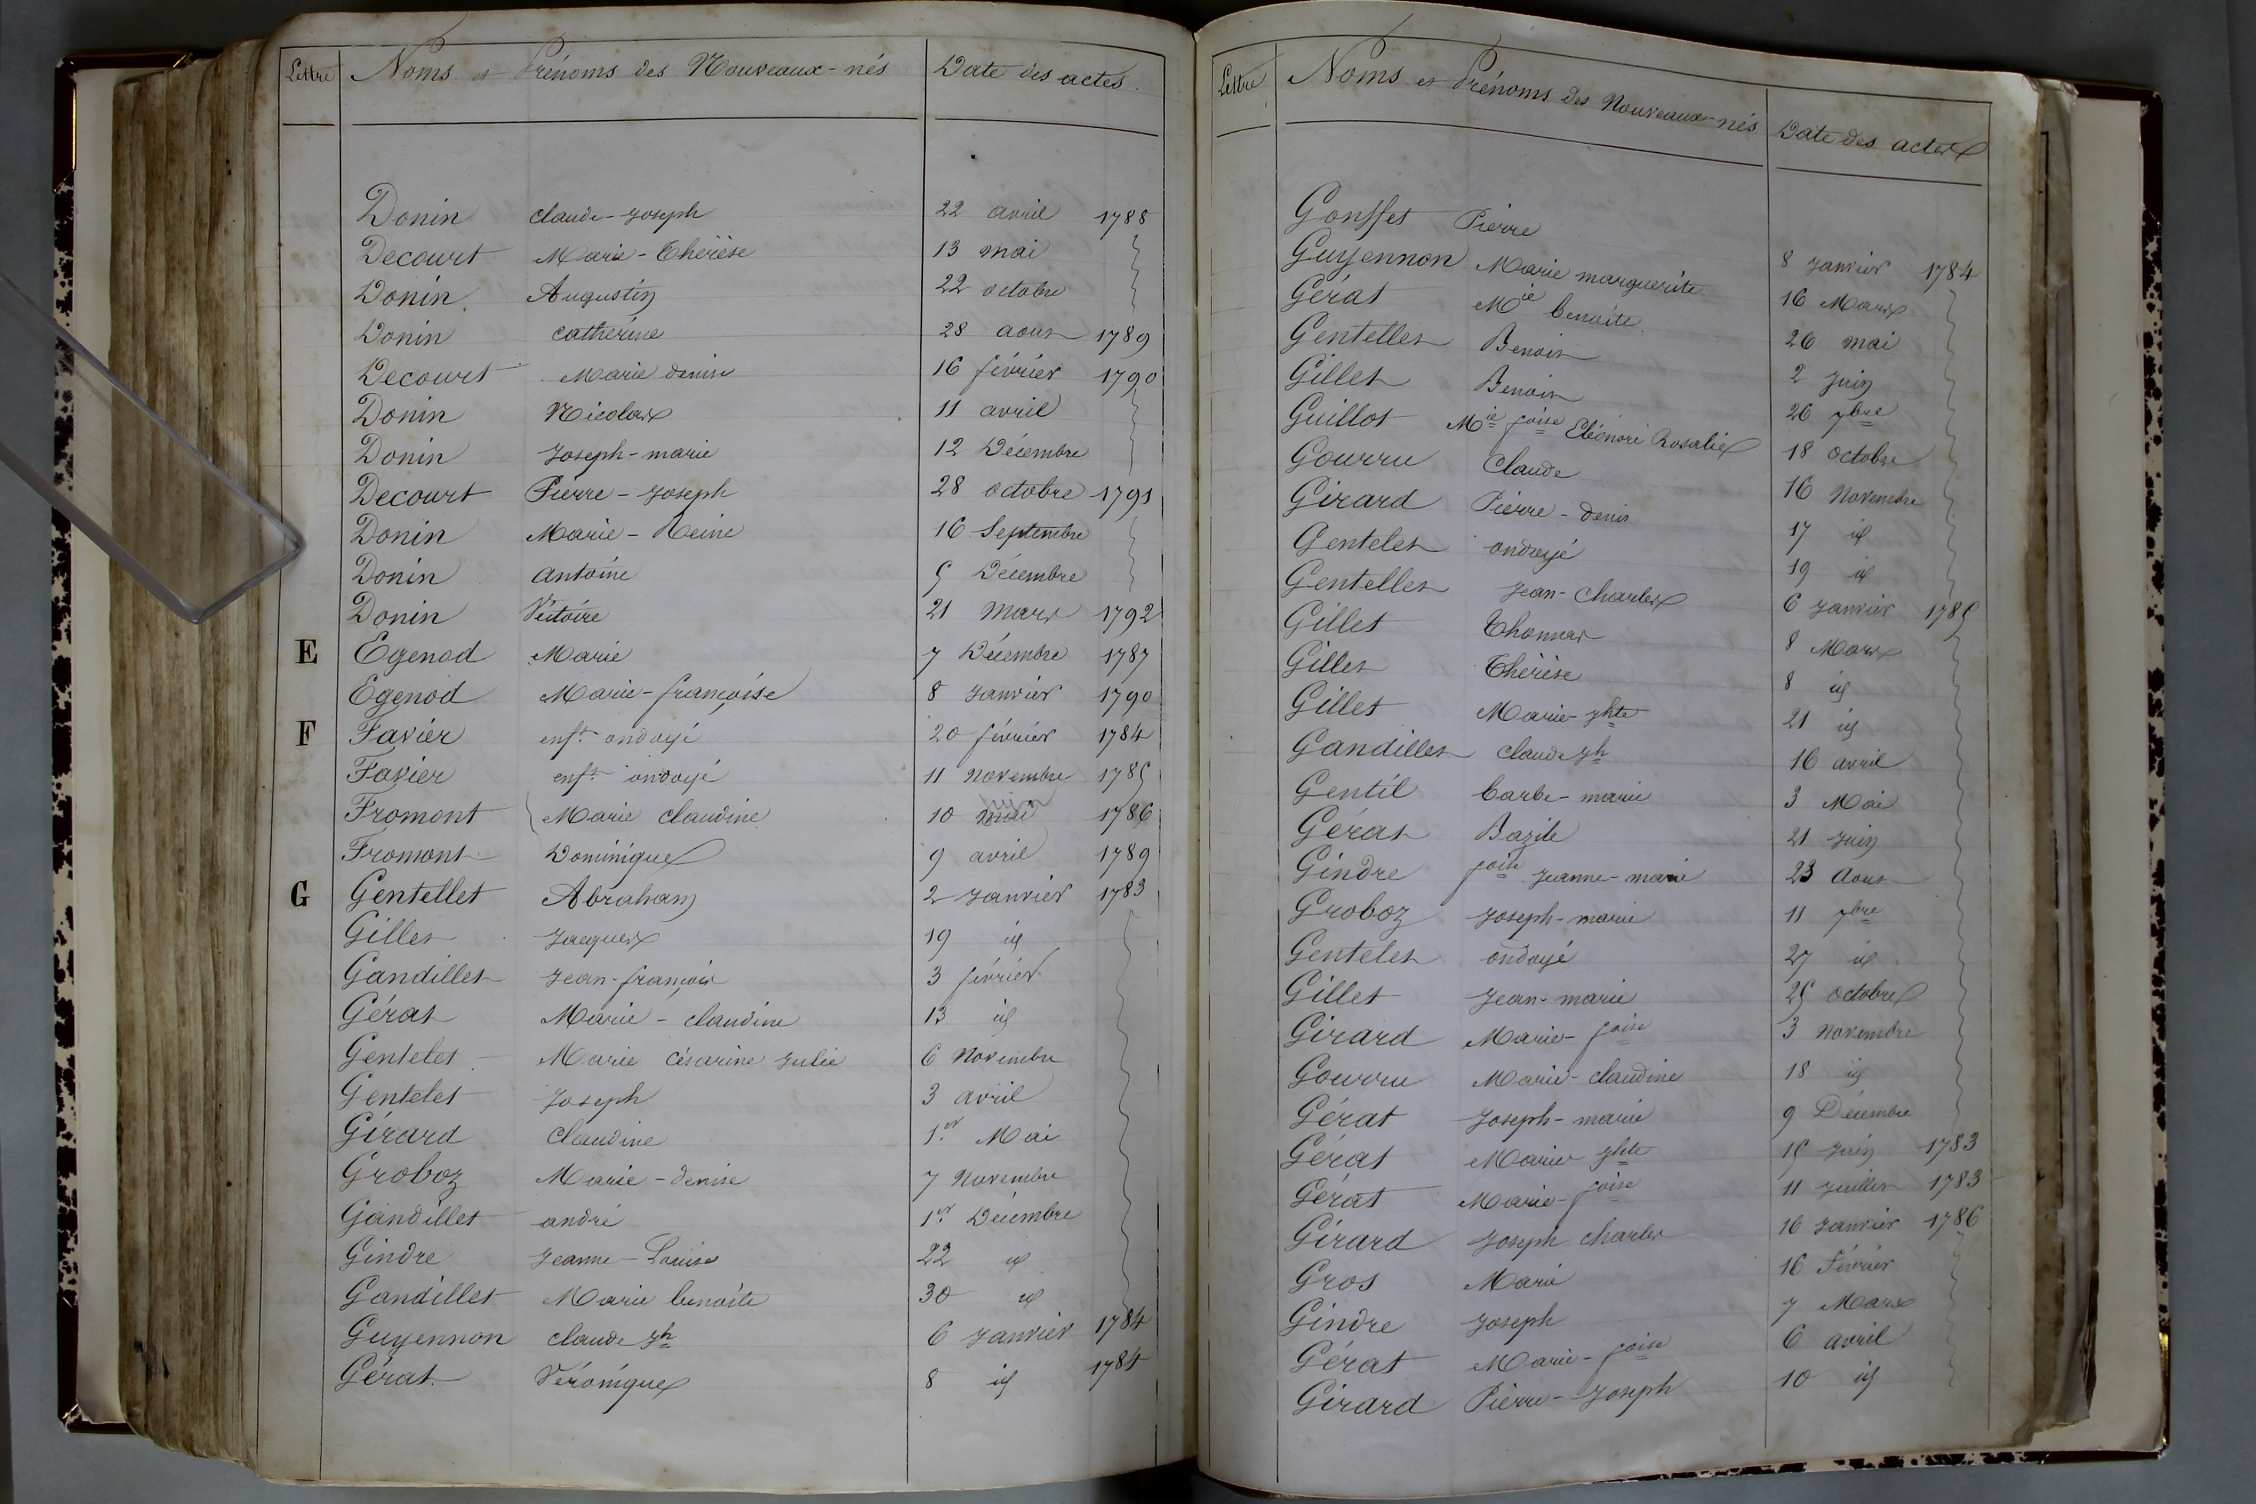 Lettre Noms et Prénoms des Nouveaux-nés Date des actes.
Donin Claude-Joseph 22 avril 1788
Decourt Marie-Thérèse 13 mai
Donin Augustin 22 octobre
Donin catherine 28 aout 1789
Decourt Marie denise 16 février 1790
Donin Nicolas 11 avril
Donin Joseph-marie 12 Décembre
Decourt Pierre-Joseph 28 octobre 1791
Donin Marie-Reine 16 Septembre
Donin antoine 5 Décembre
Donin Victoire 21 Mars 1792
E Egenod Marie 7 Décembre 1787
Egenod Marie-françoise 8 Janvier 1790
F Favier enft ondoyé 20 février 1784
Favier enft ondoyé 11 novembre 1785
Fromont Marie claudine 10 1786
Fromont Dominique 9 avril 1789
G Gentellet Abraham 2 Janvier 1783
Gillet Jacques 19 id
Gandillet Jean-françois 3 février
Gérat Marie-claudine 13 id
Gentelet Marie Césarine Julie 6 Novembre
Gentelet Joseph 3 avril
Girard Claudine 1er Mai
Groboz Marie-denise 7 Novembre
Gandillet andré 1er Décembre
Gindre Jeanne-Louise 22 id
Gandillet Marie benoite 30 id
Guyennon claude Jh 6 Janvier 1784
Gérat Véronique 8 id 1784
Lettre Noms et Prénoms des Nouveaux-nés Date des actes
Gonffet Pierre 8 Janvier 1784
Guyennon Marie marguerite 16 Mars
Gérat Mie benoite 26 mai
Gentellet Benoit 2 Juin
Gillet Benoit 26 7bre
Guillot Mie foise Eléonore Rosalie 18 octobre
Gourru Claude 16 Novembre
Girard Pierre-denis 17 id
Gentelet ondoyé 19 id
Gentellet Jean-Charles 6 Janvier 1785
Gillet Thomas 8 Mars
Gillet Thérèse 8 id
Gillet Marie-Jhte 21 id
Gandillet claude Jh 16 avril
Gentil barbe-marie 3 Mai
Gérat Bazile 21 Juin
Gindre foise Jeanne-marie 23 Aout
Groboz Joseph-marie 11 7bre
Gentelet ondoyé 27 id
Gillet Jean-marie 25 octobre
Girard Marie-foise 3 novembre
Gourru Marie-claudine 18 id
Gérat Joseph-marie 9 Décembre
Gérat Marie Jhte 15 Juin 1783
Gérat Marie-foise 11 Juillet 1783
Girard Joseph charles 16 Janvier 1786
Gros Marie 16 Février
Gindre Joseph 7 Mars
Gérat Marie-foise 6 avril
Girard Pierre-Joseph 10 id